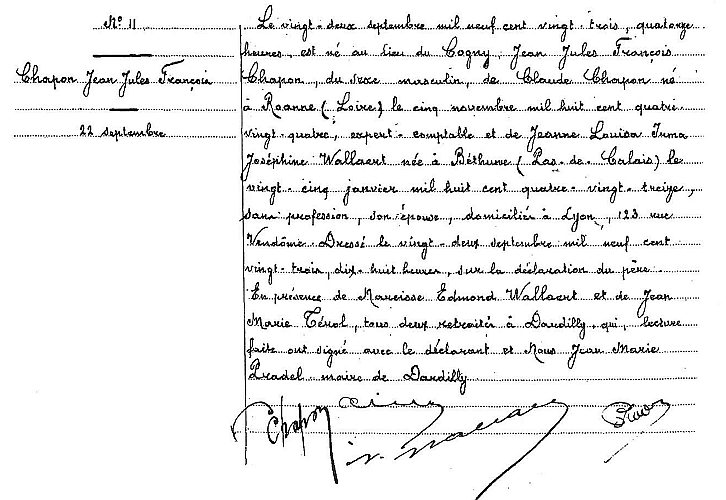 N° 11
Chapon Jean Jules François
22 septembre
Le vingt-deux septembre mil neuf cent vingt-trois, quatorze
heures, est né au lieu du Cogny, Jean Jules François
Chapon, du sexe masculin, de Claude Chapon né
à Roanne (Loire) le cinq novembre mil huit cent quatre
vingt-quatre, expert-comptable et de Jeanne Louisa Irma
Joséphine Wallaert née à Béthune (Pas-de-Calais) le
vingt-cinq janvier mil huit cent quatre-vingt-treize,
sans profession, son épouse, domiciliés à Lyon, 123 rue
Vendôme. Dressé le vingt-deux septembre mil neuf cent
vingt-trois, dix-huit heures, sur la déclaration du père.
En présence de Narcisse Edmond Wallaert et de Jean
Marie Térol, tous deux retraités à Dardilly, qui, lecture
faite ont signé avec le déclarant et Nous Jean Marie
Pradel maire de Dardilly
Chapon